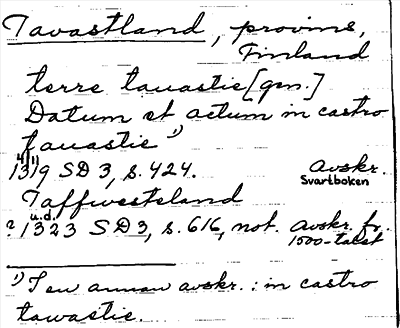 Tavastland, provins,
Finland
terre tauastie [gen.]
Datum et actum in castro
fauastie ¹)
1319 SD 3, s. 424. Avskr.
Svartboken
Taffwesteland
u.d.
? 1323 SD 3, s. 616, not. Avskr. fr.
1500-talet
¹) I en annan avskr.: in castro
tawastie.